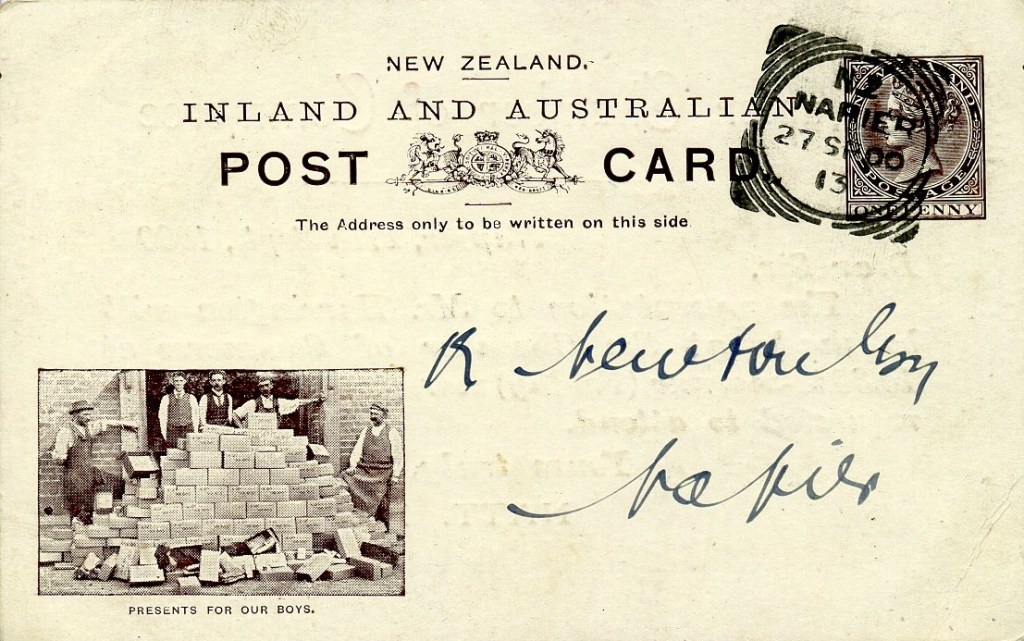 NEW ZEALAND.
INLAND AND AUSTRALIAN
POST CARD.
The Address only to be written on this side
NZ
NAPIER
27 SP 00
13
POSTAGE
ONE PENNY
R Newton Esq
Napier
PRESENTS FOR OUR BOYS.